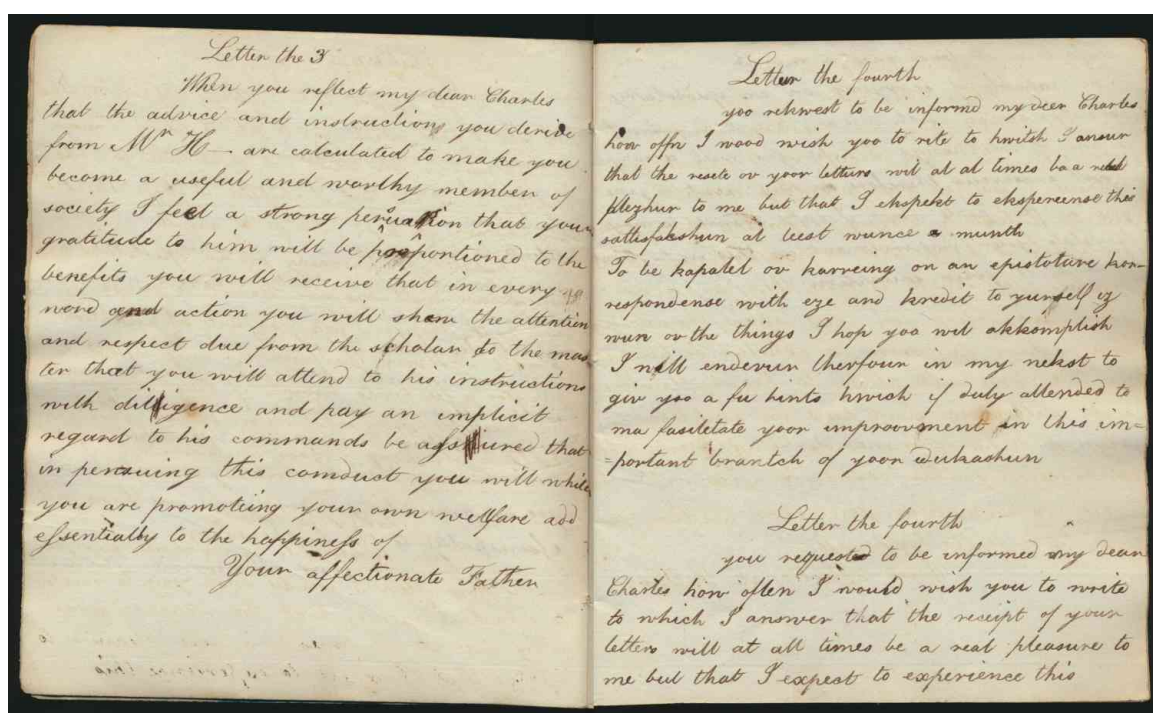 Letter the 3
When you reflect my dear Charles
that the advice and instructions you derive
from Mr H— are calculated to make you
become a useful and worthy member of
society I feel a strong persuasion that your
gratitude to him will be proportioned to the
benefits you will receive that in every
word and action you will shew the attention
and respect due from the scholar to the mas
ter that you will attend to his instructions
with dilligence and pay an implicit
regard to his commands be assured that
in persuing this conduct you will while
you are promoteing your own welfare add
essentially to the happiness of
Your affectionate Father
Letter the fourth
yoo rekwest to be informd my deer Charles
how offn I wood wish yoo to rite to hwitsh I ansur
that the resete ov yoor letturs wil at al times ba a
plezhur to me but that I ekspekt to ekspereense this
sattisfakshun at leest wunce a munth
To be kapabel ov karreing on an epistolare kor-
respondense with eze and kredit to yurself iz
wun ov the things I hop yoo wil akkomplish
I will endevur therfour in my nekst to
giv yoo a fu hints hwich if duly attended to
ma fasiletate yoor improovment in this im=
=portant brantch of yoor edukashun
Letter the fourth
you requested to be informed my dear
Charles how often I would wish you to write
to which I answer that the receipt of your
letters will at all times be a real pleasure to
me but that I expect to experience this